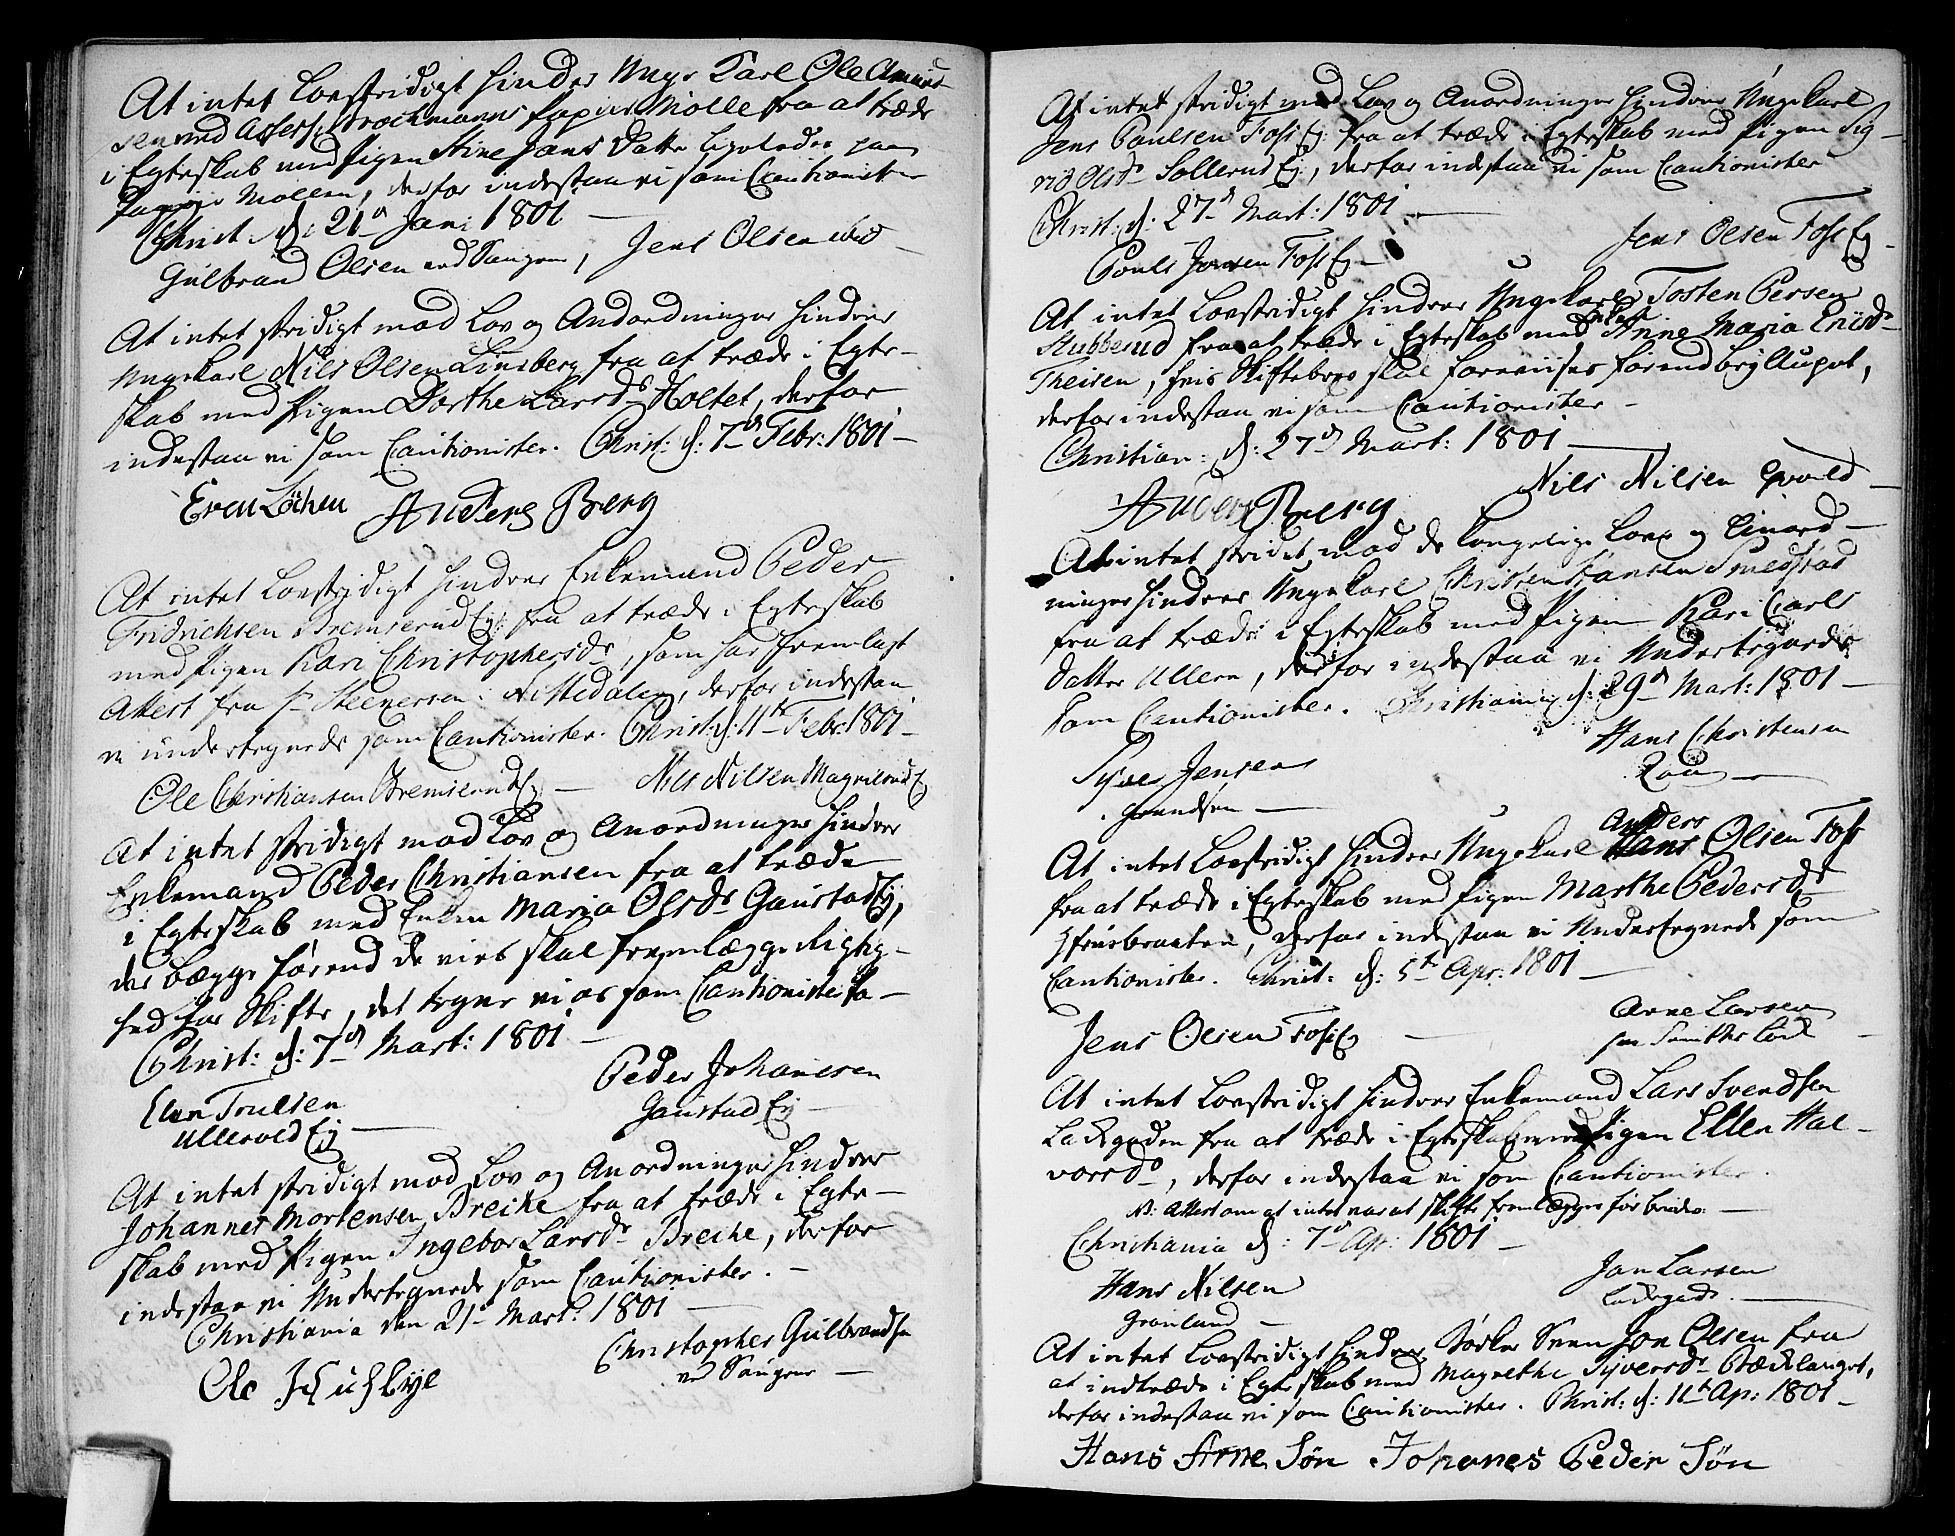 At intet Lovstridigt hindrer Unge Karl Ole Amund
sen ved Agers Brochmanns papiir Mølle fra at træde
i Egteskab med Pigen Stine Jans Datter ligeledes paa
Papiir Møllen, derfor indestaa vi som Cautionister
Christ: d: 21de Jan: 1801
Gulbrand Olsen ved Saugene, Jens Olsen ibid
At intet stridigt mod Lov og Andordninger hindrer
Ungekarl Nils Olsen Linsberg fra at træde i Egte-
skab med Pigen Dorthe Larsdr Holtet, derfor
indestaa vi som Cautionister. Christ: d: 7de Febr: 1801
Even Löchen Anders Berg
At intet Lovstridigt hindrer Enkemand Peder
Fridrichsen Bremserud Ej: fra at træde i Egteskab
med Pigen Kari Christophersdr, som har fremlagt
Attest fra Hr Steenersen i Nittedalen, derfor indestaa
vi undertegnede som Cautionister. Christ: d: 11te Febr: 1801
Ole Christiansen Bremserud Ej Nils Nilsen Magnilrud Ej
At intet stridigt mod Lov og Anordninger hindrer
Enkemand Peder Christiansen fra at træde
i Egteskab med Enken Maria Olsdr Gaustad Ej,
der begge førend de vies skal fremlægge Rigtig-
hed for Skifte, det tegner vi os som Cautionister fo-
Christ: d: 7de Mart: 1801
Elen Trulsen Peder Johannesen
Ullevold Ej Gaustad Ej
At intet stridigt mod Lov og Anordninger hindrer
Johannes Mortensen Breche fra at træde i Egte-
skab med Pigen Ingebor Larsdr Breche, derfor
indestaa vi Undertegnede som Cautionister.
Christiania den 21de Mart: 1801
Christopher Gulbrandsen
Ole ved Saugene
At intet stridigt mod Lov og Anordninger hindrer Ungekarl
Jens Poulsen Foss Ej: fra at træde i Egteskab med Pigen Sig-
rid Olsdr Sollerud Ej:, derfor indestaa vi som Cautionister
Christ: d: 27de Mart: 1801
Jens Olsen Foss Ej
Pouls Jonsen Foss Ej
At intet Lovstridigt hindrer Ungekarl Tosten Persen
Stubberud fra at træde i Egteskab med Anne Maria Erichsdr
Theisen, hvis Skiftebrev skal foreviises førend brylluppet,
derfor indestaa vi som Cautionister
Christian: d: 27de Mart: 1801
Nils Nilsen
Anders Berg
At intet stridet mod de kongelige Love og Anord-
ninger hindrer Ungekarl Christen Hansen Smedstad
fra at træde i Egteskab med Pigen Kari Carls
datter Ullern, derfor indestaa vi Undertegnede
som Cautionister. Christiania d: 29de Mart: 1801
Hans Christensen
Syver Jensen
At intet Lovstridigt hindrer Ungekarl Anders Olsen Foss
fra at træde i Egteskab med Pigen Marthe Pedersdr
Grinsbraaten, derfor indestaa vi Undertegnede som
Cautionister. Christ: d: 5te Apr: 1801
Arne Larsen
Jens Olsen Foss Ej
At intet Lovstridigt hindrer Enkemand Lars Svendsen
Ladegaden fra at træde i Egteskab med Pigen Ellen Hal-
vorsdr, derfor indestaa vi som Cautionister.
NB: Attest om at intet var at skifte fremlægges før brudev:
Christiania d: 7de Ap: 1801
Hans Nilsen Jan Larsen
Grønland Ladegade
At intet Lovstridigt hindrer Sorbe Svenn Jon Olsen fra
at indtræde i Egteskab med Magrethe Syversdr Bækkelauget,
derfor indestaa vi som Cautionister. Christ: d: 11te Ap: 1801
Hans Arne Søn Johanes Peder Søn